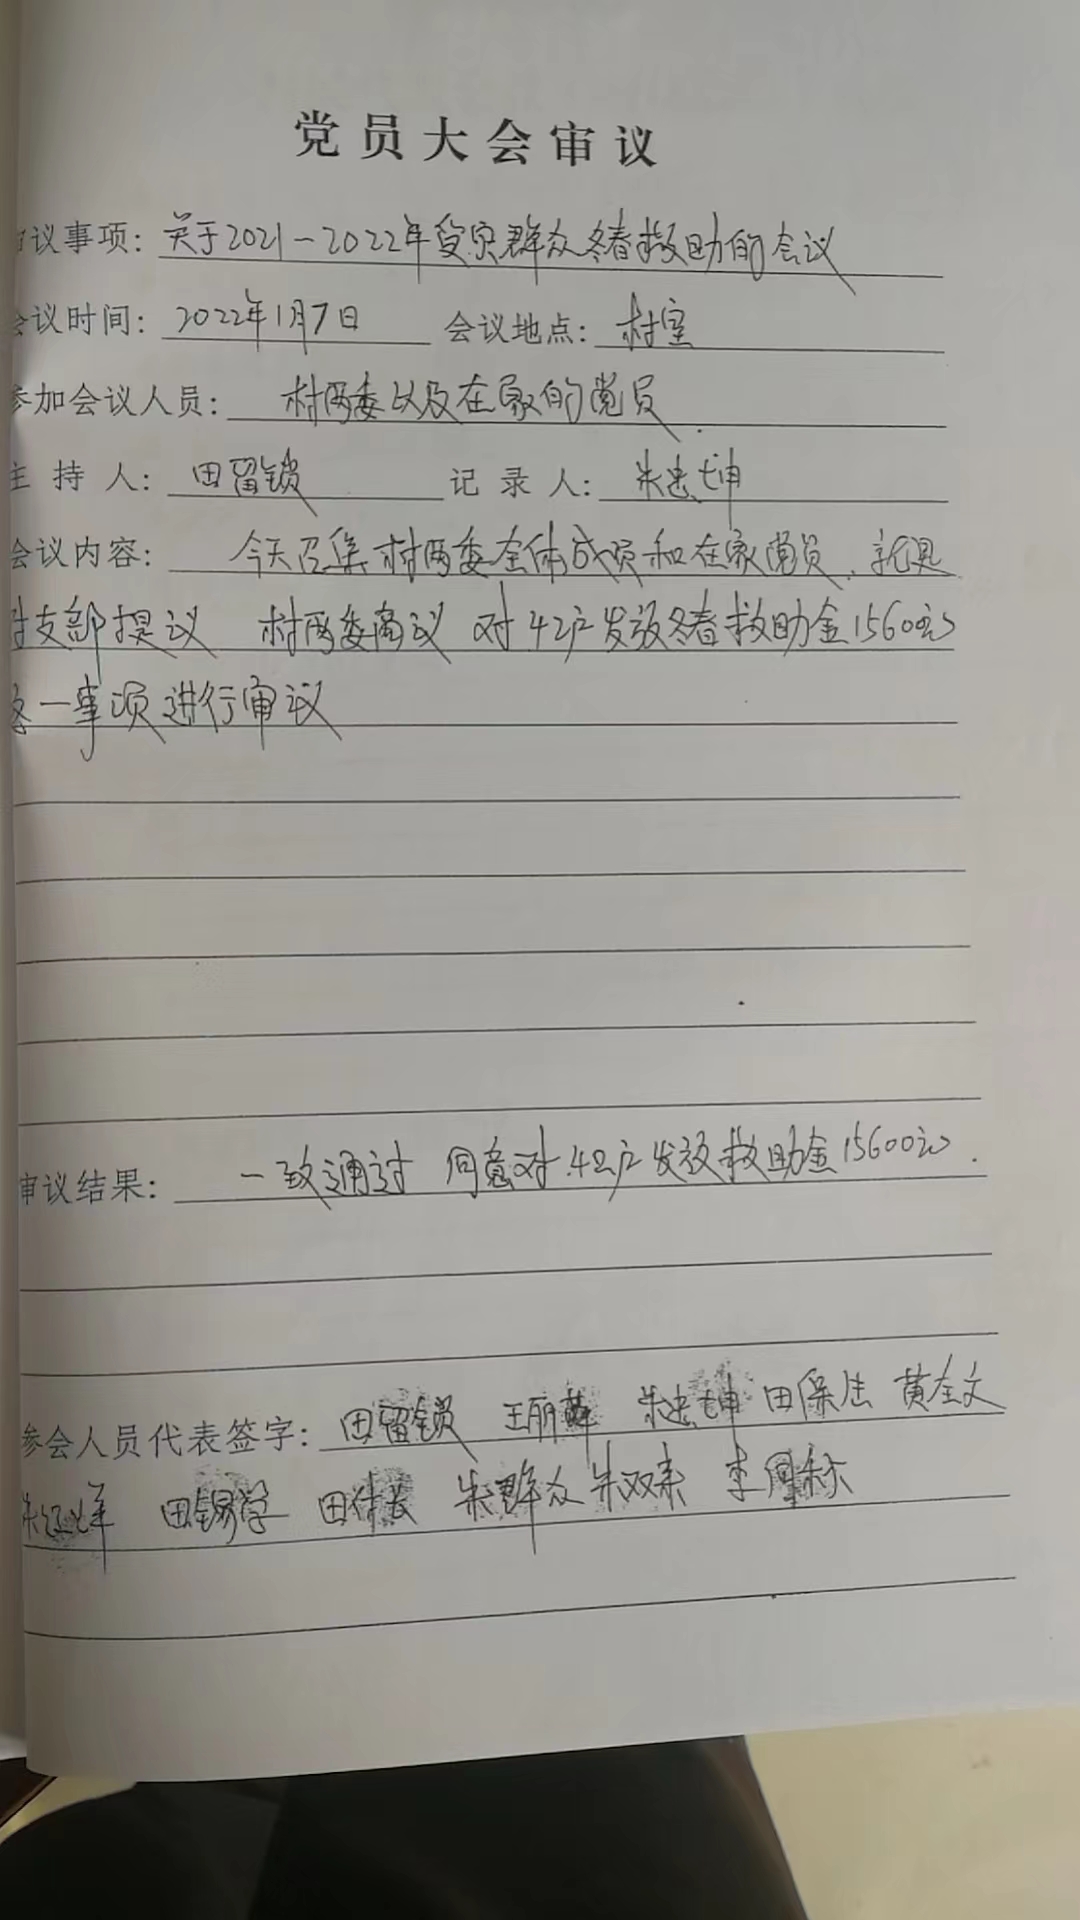 党员大会审议
审议事项：关于2021-2022年受灾群众冬春救助的会议
会议时间：2022年1月7日 会议地点：村室
参加会议人员：村两委以及在家的党员.
主持人：田留锁 记录人：朱忠坤
会议内容：今天召集村两委全体成员和在家党员，就是
村支部提议 村两委商议 对42户发放冬春救助金15600元
这一事项进行审议
审议结果：一致通过 同意对42户发放救助金15600元.
参会人员代表签字：田留锁 王丽 朱忠坤 田保法 黄全文
朱 田锡学 田 朱群众 朱双来 李